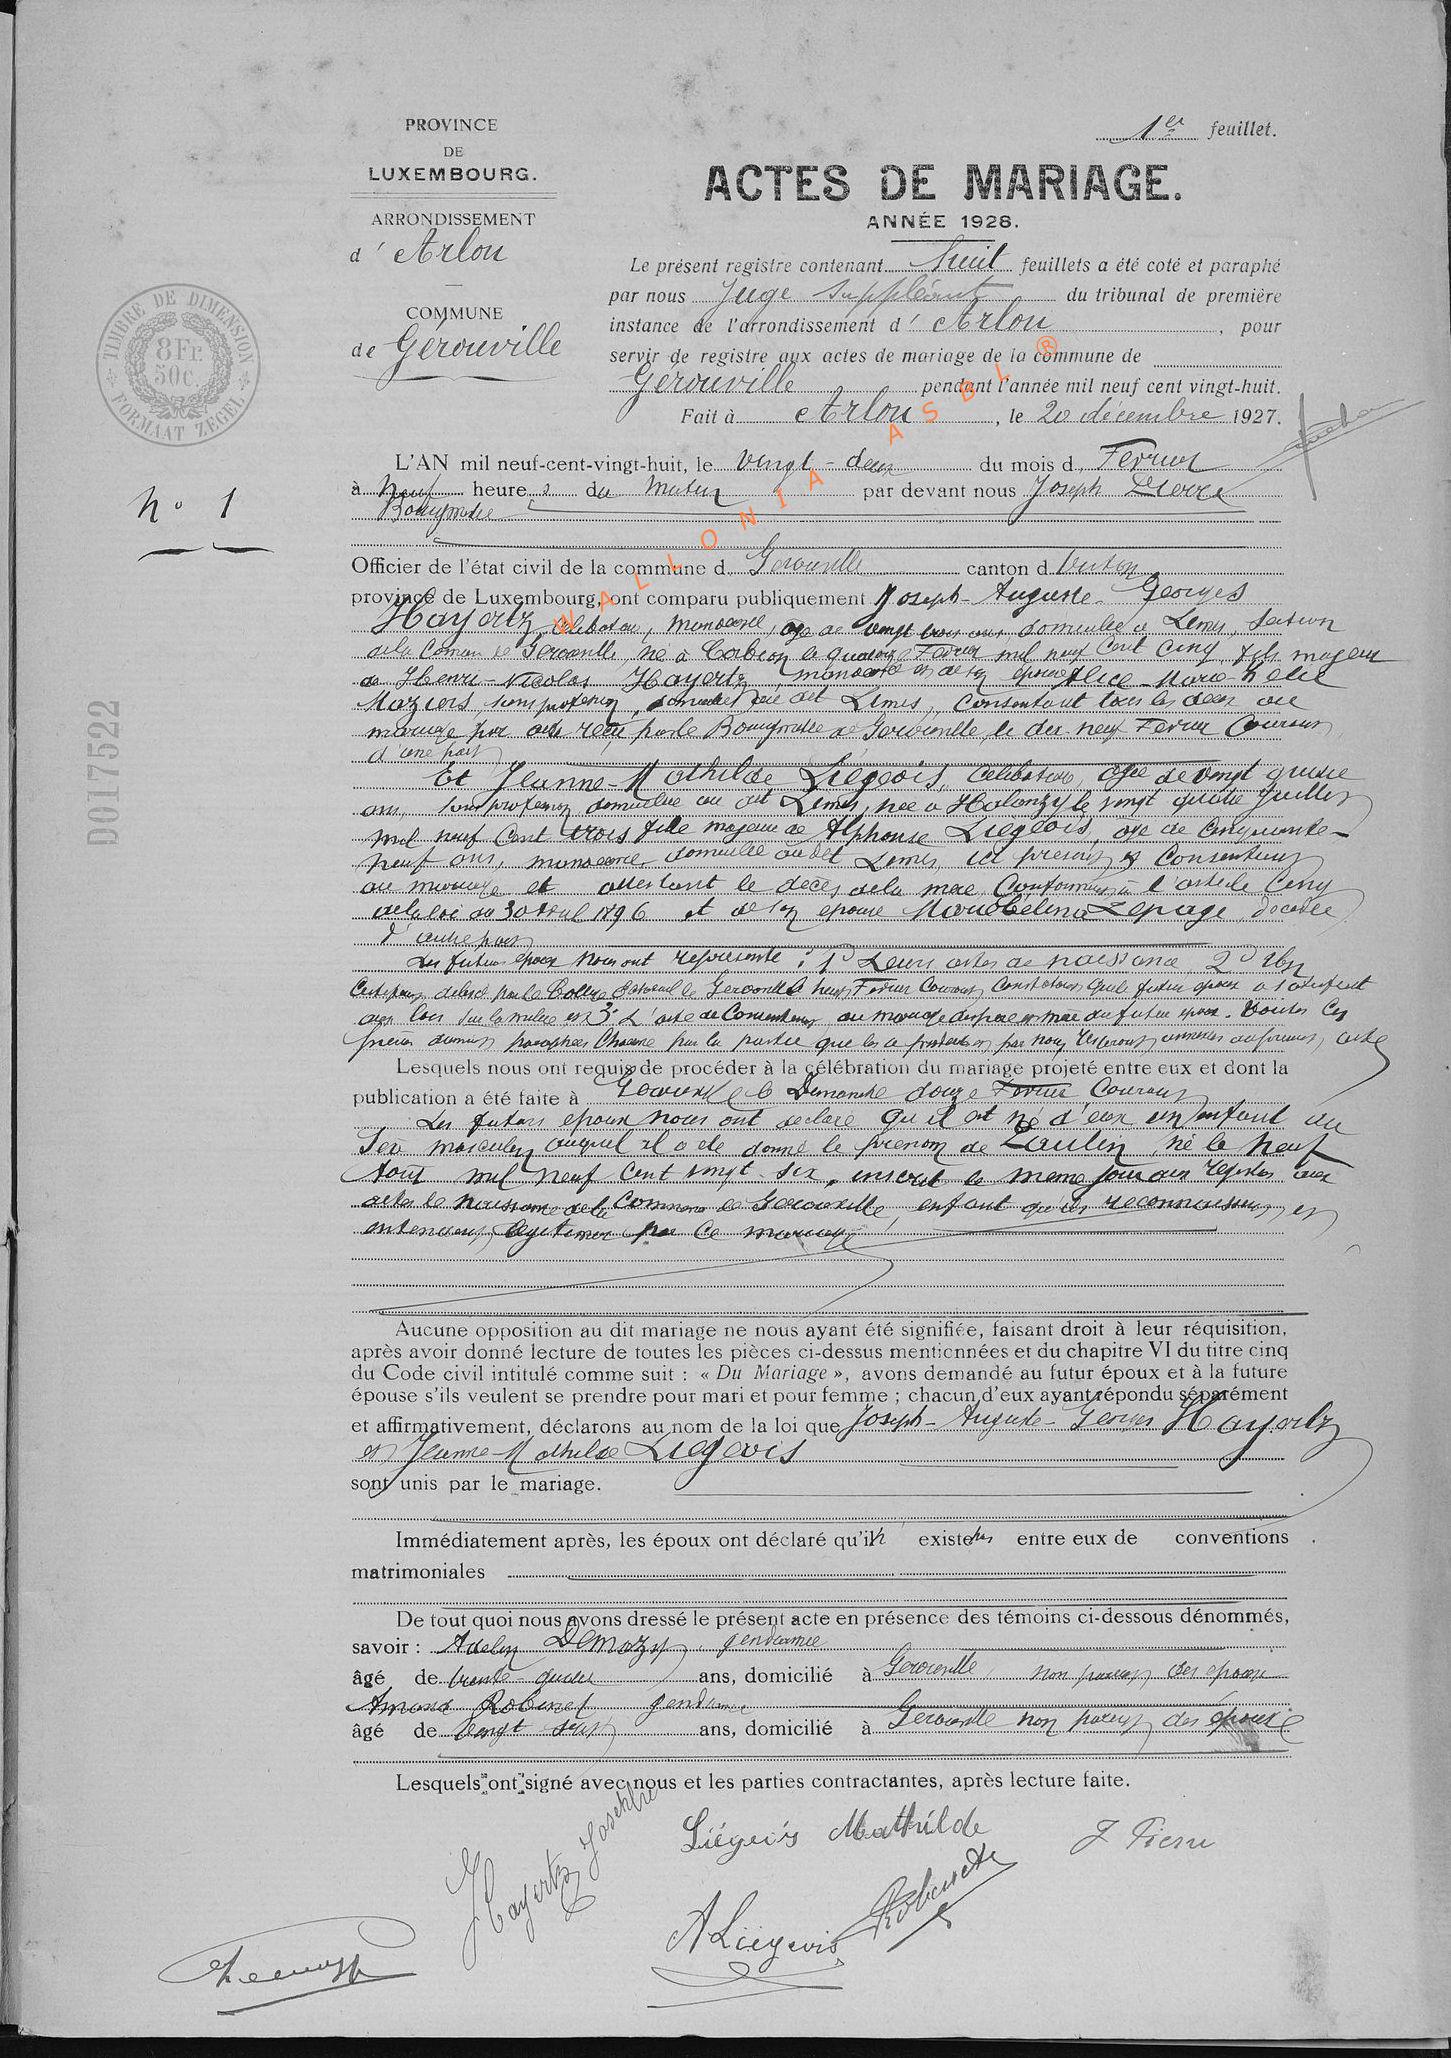 PROVINCE
DE
LUXEMBOURG.
ARRONDISSEMENT
d' Arlon
COMMUNE
de Gérouville
TIMBRE DE DIMENSION
8 Fr.
50c.
FORMAAT ZEGEL
1er feuillet.
ACTES DE MARIAGE.
ANNÉE 1928.
Le présent registre contenant huit feuillets a été coté et paraphé
par nous Juge suppléant du tribunal de première
instance de l'arrondissement d' Arlon, pour
servir de registre aux actes de mariage de la commune de
Gérouville pendant l'année mil neuf cent vingt-huit.
Fait à Arlon, le 20 décembre 1927.
WALLONIA ASBL ®
N° 1
D017522
L'AN mil neuf-cent-vingt-huit, le vingt-deux du mois d. Fevrier
à neuf heures du matin par devant nous Joseph Pierre
Bourgmestre
Officier de l'état civil de la commune d. Gerouville canton d. Virton
province de Luxembourg, ont comparu publiquement Joseph-Auguste-Georges
Hayertz, celibataire, manoeuvre, age de vingt trois ans, domicilie a Limes, section
de la Commune de Gerouville, né à Corbion le quatorze Fevrier mil neuf Cent Cinq, fils majeur
de Henri-Nicolas Hayertz, manoeuvre et de son epouse Alice-Marie-
Maziers, sans profession, domicilies au dit Limes, Consentant tous les deux au
mariage par acte recu par le Bourgmestre de Gerouville, le dix neuf Fevrier Courant
d'une part
Et Jeanne-Mathilde Liégeois, Celibataire, agée de vingt quatre
ans, sans profession domiciliee au dit Limes, nee a Halanzy le vingt quatre Juillet
mil neuf Cent trois fille majeure de Alphonse Liegeois, age de Cinquante-
neuf ans, manoeuvre domicilie au dit Limes, ici present et Consentant
au mariage et attestant le deces de la mere Conformement a l'article Cinq
de la loi du 30 Avril 1896 et de son epouse Marie Célina Lepage, décedée
d'autre part
Les futurs epoux nous ont représenté: 1° Leurs actes de naissance 2° Un
Certificat delivré par le College Echevinal de Gerouville le huit Fevrier Courant Constatant que le futur epoux a satisfait
aux lois sur la milice et 3° L'acte de Consentement au mariage des pere et mere du futur epoux. Toutes Ces
pièces dument paraphees Chacune par la partie que les a produites et par nous resteront annexees au present acte
Lesquels nous ont requis de procéder à la célébration du mariage projeté entre eux et dont la
publication a été faite à Gerouville le Dimanche douze Fevrier Courant
Les futurs epoux nous ont declare qu'il est né d'eux un enfant du
sexe masculin auquel il a ete donné le prenom de Paulin, né le neuf
Aout mil neuf Cent vingt-six, inscrit le meme jour aux registres aux
actes de naissance de la Commune de Gerouville, enfant qu'ils reconnaissent et
entendent legitimer par ce mariage
Aucune opposition au dit mariage ne nous ayant été signifiée, faisant droit à leur réquisition,
après avoir donné lecture de toutes les pièces ci-dessus mentionnées et du chapitre VI du titre cinq
du Code civil intitulé comme suit : « Du Mariage », avons demandé au futur époux et à la future
épouse s'ils veulent se prendre pour mari et pour femme ; chacun d'eux ayant répondu séparément
et affirmativement, déclarons au nom de la loi que Joseph-Auguste-Georges Hayertz
et Jeanne-Mathilde Liegeois
sont unis par le mariage.
Immédiatement après, les époux ont déclaré qu'il n' existe pas entre eux de conventions
matrimoniales
De tout quoi nous avons dressé le présent acte en présence des témoins ci-dessous dénommés,
savoir : Adelin Demazy, gendarme
âgé de trente quatre ans, domicilié à Gerouville non parent des epoux
Amand Robinet gendarme
âgé de vingt sept ans, domicilié à Gerouville non parent des époux
Lesquels ont signé avec nous et les parties contractantes, après lecture faite.
Hayertz Joseph
Liégeois Mathilde
J Pierre
A Liégeois
Robinet A
Demazy